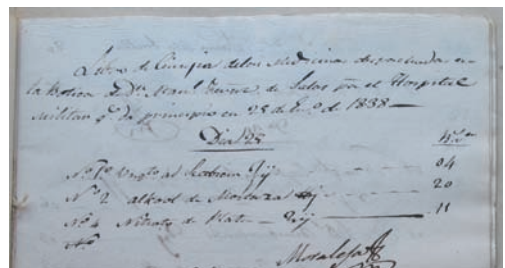 Libro de Cirugia de las Medicinas despachadas en
la Botica de Dn. Manl. Ximenez de Salas pa. el Hospital
Militar qe. da principio en 25 de Eno. de 1838 —
Dia 25
No. 1o Ungto. al Scabiem ʒij — 04
No. 2 alkool de — 20
No. 4 Nitrato de Plata — ʒij — 11
No.